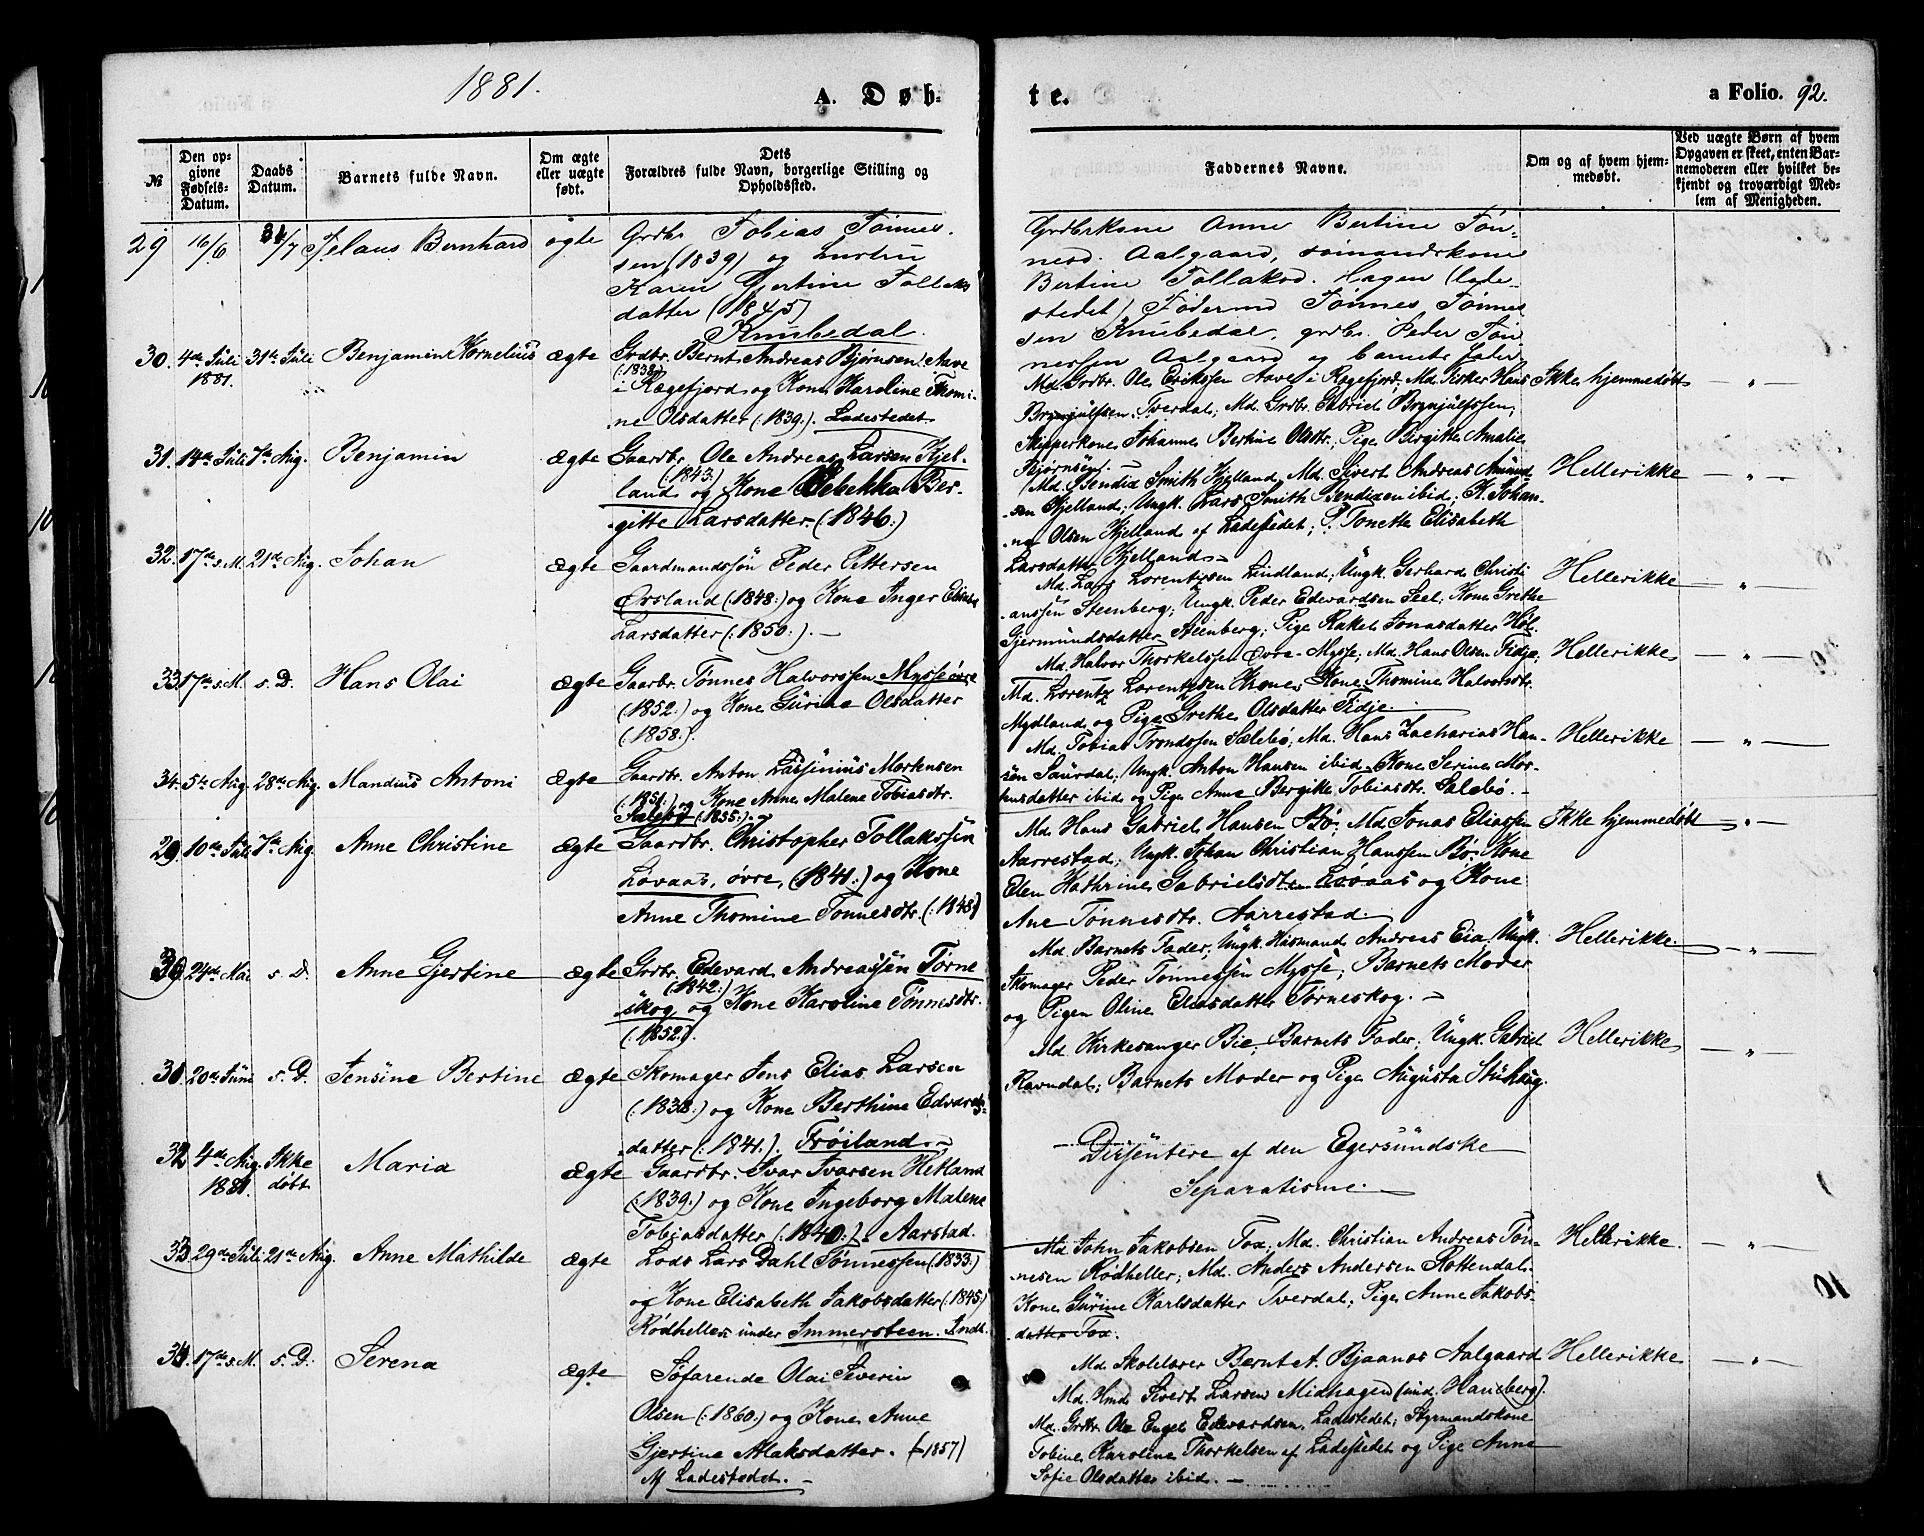 1881.
A. Døb-
te.
a Folio. 92.
№
Den op-
givne
Fødsels-
Datum.
Daabs
Datum.
Barnets fulde Navn.
Om ægte
eller uægte
født.
Dets
Forældres fulde Navn, borgerlige Stilling og
Opholdssted.
Faddernes Navne.
Om og af hvem hjem-
medøbt.
Ved uægte Børn af hvem
Opgaven er skeet, enten Bar-
nemoderen eller hvilket be-
kjendt og troværdigt Med-
lem af Menigheden.
29 16/6 /7 Jelaus Bernhard ægte Grdbr Tobias Tønnes-
sen (1839) og hustru
Karen Gjertine Tolleks
datter (1845)
Knubedal.
Grdbrkone Anne Bertine Tøn-
nesd. Aalgaard, sømandskone
Bertine Tollaksd. Hagen (lade-
stedet), Fødermd Tønnes Tønnes
sen Knubedal, grdbr. Peder Tøn-
nessen Aalgaard og barnets fader
30. 4de Juli 31te Juli Benjamin Kornelius ægte Grdbr. Bernt Andreas Bjørnsen Aave
1881. (:1838:)
i Rægefjord og Kone Karoline Thomi-
ne Olsdatter (:1839.). Ladestedet.
Md. Grdbr. Ole Eriksen Aave i Rægefjord; Md. Fisker Hans Ikke hjemmedøbt — „ —
Brynjulfsen Tverdal; Md. Grdbr. Gabriel Brynjulfssen,
Skipperkone Johanne Bertine Olsdtr, Pige Birgitte Amalie
Bjørnsen.
31. 14de Juli 7de Aug. Benjamin ægte Gaardbr. Ole Andreas Larsen Kjel-
(:1843:)
land og Kone Rebekka Ber-
gitte Larsdatter. (1846:)
Md. Bendix Smith Kjelland, Md. Sivert Andreas Amund- Hellerikke — „ —
sen Kjelland; Ungk. Lars Smith Bendixen ibid; K. Johan-
ne Olsen Kjelland af Ladestedet; P. Tonette Elisabeth
Larsdatter Kjelland.
32. 17de s. M. 21de Aug. Johan ægte Gaardmandssøn Peder Pettersen
Ørsland (:1848:) og Kone Inger
Larsdatter (:1850:). —
Md. Lars Lorentzsen Lindland; Ungk. Gerhard Christi Hellerikke „
anssen Steenberg; Ungk. Peder Edvardsen Seel; Kone Grethe
Gjermundsdatter Steenberg; Pige Rakel Jonasdatter Høl.
33 17de s. M. s. D. Hans Olai ægte Gaarbr. Tønnes Halvorssen Mysse øvre
(:1852:) og Kone Gurine Olsdatter
(:1858.)
Md. Halvor Thorkelssen Øvre-Mysse; Md. Hans Olsen Tidje; Hellerikke — „ —
Md. Lorentz Lorentzsen Krone; Kone Thomine Halvorsdtr.
Mydland og Pige Grethe Olsdatter Tidje.
34. 5te Aug. 28de Aug. Mandius Antoni ægte Gaardbr. Anton Martensen
(:1851:) og Kone Anne Malene Tobiasdtr.
Salebø (:1855:).
Md. Tobias Trondssen Salebø; Md. Hans Zacharias Han- Hellerikke — „ —
sen Saurdal; Ungk. Anton Hansen ibid. Kone Serine Mor-
tensdatter ibid og Pige Anne Bergitte Tobiasdtr. Salebø. —
29. 10de Juli 7de Aug. Anne Christine ægte Gaardbr. Christopher Tollakssen
Løvaas, øvre, (1841:) og Kone
Anne Thomine Tonnesdtr. (:1848)
Md. Hans Gabriel Hansen Bø. Md. Jonas Eliassen Ikke hjemmedøbt — „ —
Aarrestad; Ungk. Johan Christian Hanssen Bø. Kone
Elen Kathrine Gabrielsdtr. Løvaas og Kone
Ane Tønnesdtr. Aarrestad.
30 24de Mai s. D. Anne Gjertine ægte Grdbr. Edevard Andreassen Tørne
(1842:)
skog og Kone Karoline Tønnesdtr.
(:1852).
Md. Barnets Fader; Ungk. Husmand Andreas Eia, Ungk. Hellerikke. — „ —
Skomager Peder Tønnessen Mysse; Barnets Moder
og Pigen Oline Eliasdatter Tørneskog. —
31 20de Juni s. D. Jensine Bertine ægte Skomager Jens Elias Larsen
(:1838:) og Kone Berthine Edvards-
datter (:1841:). Frøiland. —
Md. Kirkesanger Bie; Barnets Fader; Ungk. Gabriel Hellerikke — „ —
Ravndal; Barnets Moder og Pige Augusta Stuhaug.
32 4de Aug. Ikke Maria ægte Gaardbr. Ivar Ivarsen Hetland
1881. døbt
(:1839:) og Kone Ingeborg Malene
Tobiasdatter (:1840:). Aarstad.
Dissentere af den Egersundske
Separatisme. —
33 29de Juli 21de Aug. Anne Mathilde ægte Lods Lars Dahl Tønnessen (1833:)
og Kone Elisabeth Jakobsdatter (:1845:)
Rødheller under Immersteen. Indt.
Md. John Jakobsen Tox; Md. Christian Andreas Tøn- Hellerikke. — „ —
nesen Rødheller; Md. Anders Andersen Rottendal.
Kone Gurine Karlsdatter Tverdal; Pige Anne Jakobs-
datter Tox.
34. 17de s. M. s. D. Serena ægte Søfarende Olai Severin
Olsen (:1860:) og Kone Anne
Gjertine Aslaksdatter. (1857)
Af Ladestedet. —
Md. Skolelærer Bernt A. Bjaanes Aalgaard Hellerikke — „ —
Md. Hmd Sivert Larsen Midhagen (und. Haneberg).
Md. Grdbr. Ole Engel Edevardsen, Ladestedet; Styrmandskone
Tobine Karoline Thorkelsen af Ladestedet og Pige Anne
Sofie Olsdatter ibid. —